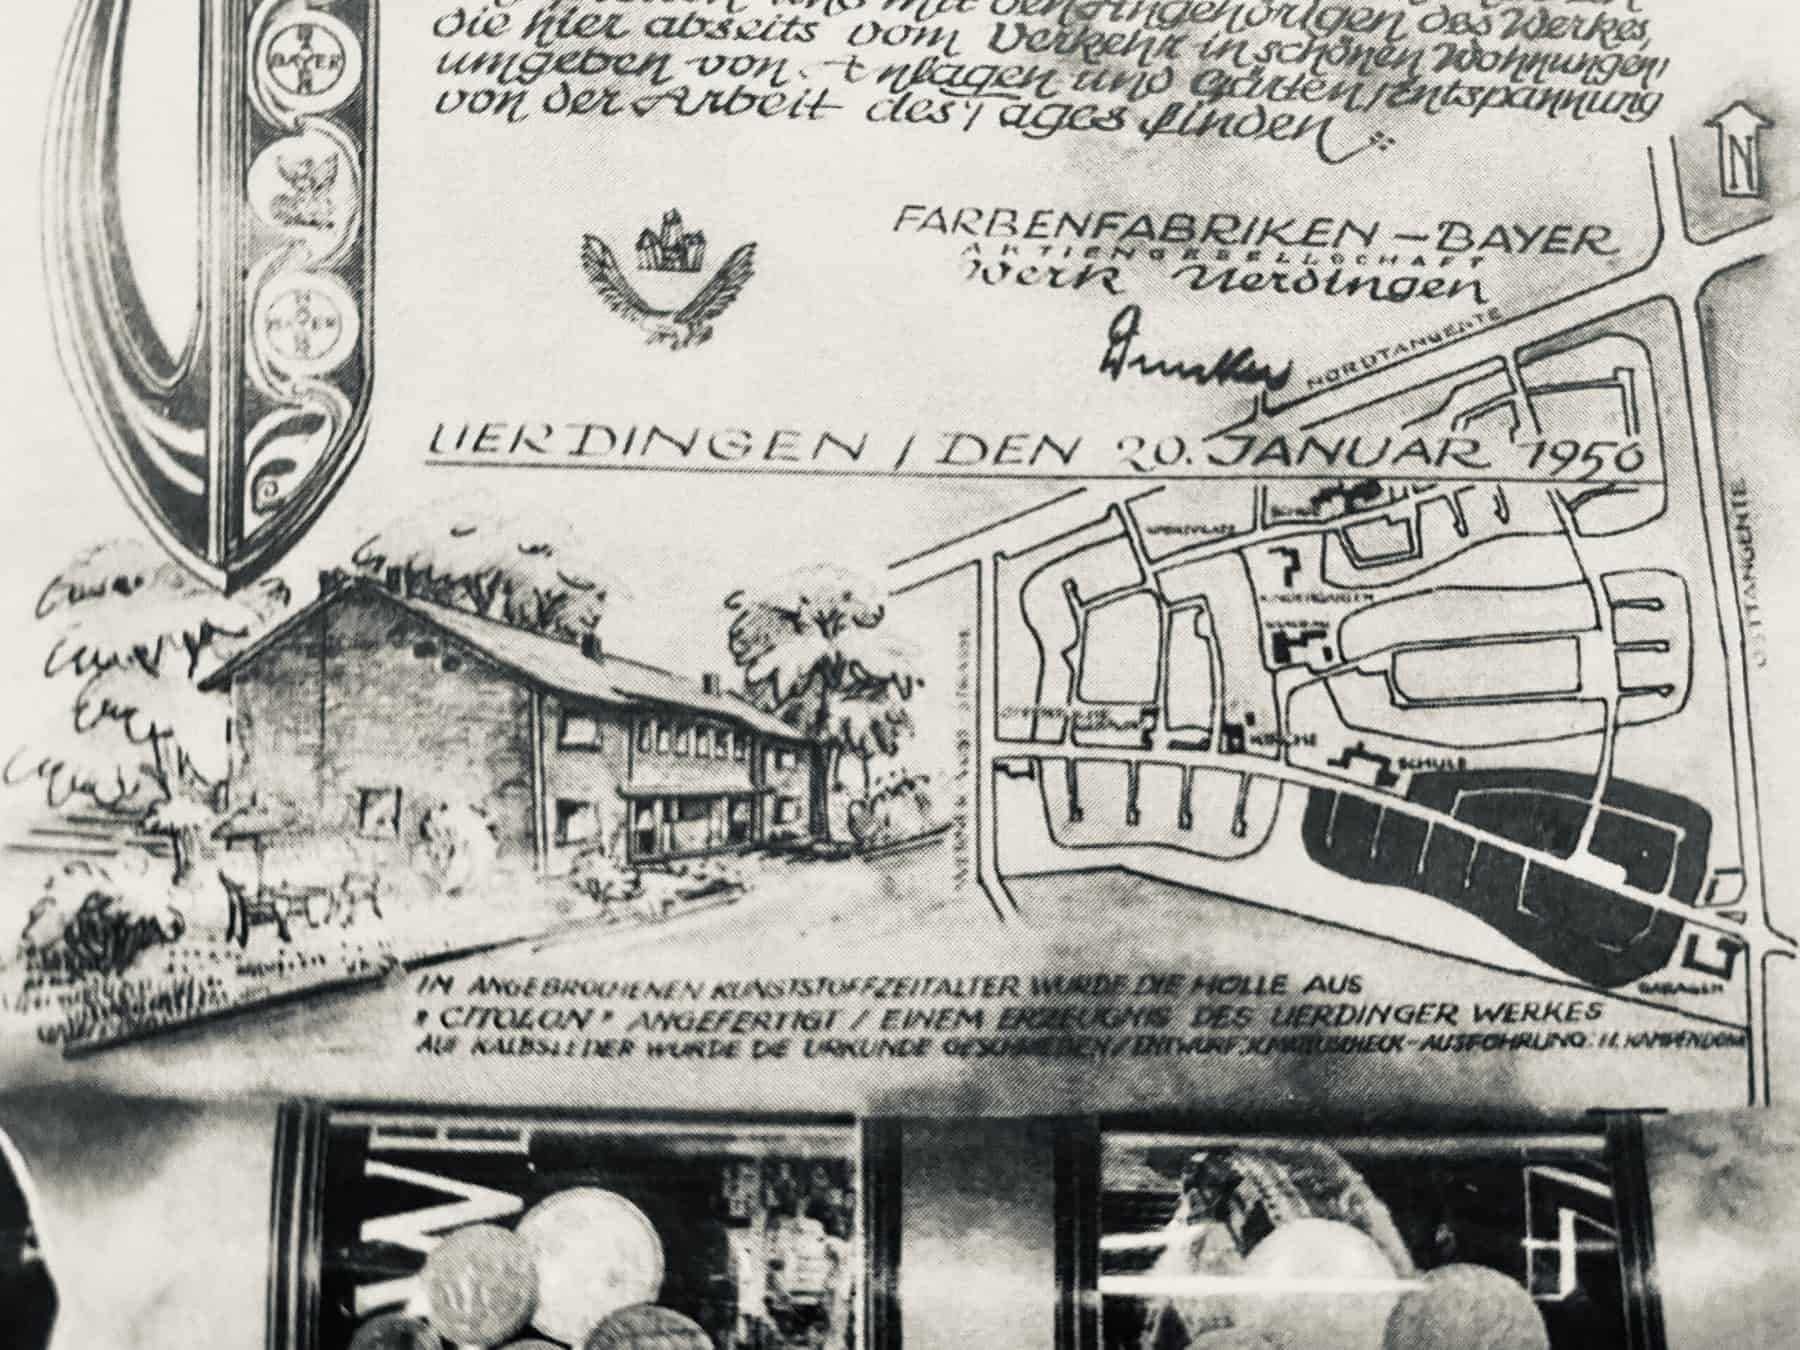 mit den Angehörigen des Werkes,
die hier abseits vom Verkehr in schönen Wohnungen,
umgeben von Anlagen und Gärten, Entspannung
von der Arbeit des Tages finden
N
BAYER
BAYER
FARBENFABRIKEN – BAYER
AKTIENGESELLSCHAFT
Werk Uerdingen
NORDTANGENTE
UERDINGEN / DEN 20. JANUAR 1956
OSTTANGENTE
KINDERGARTEN
KIRCHE
SCHULE
GARAGEN
IM ANGEBROCHENEN KUNSTSTOFFZEITALTER WURDE DIE HÜLLE AUS
"CITOLON" ANGEFERTIGT / EINEM ERZEUGNIS DES UERDINGER WERKES
AUF KALBSLEDER WURDE DIE URKUNDE GESCHRIEBEN / ENTWURF: AUSFÜHRUNG: H. KAMPENDONK